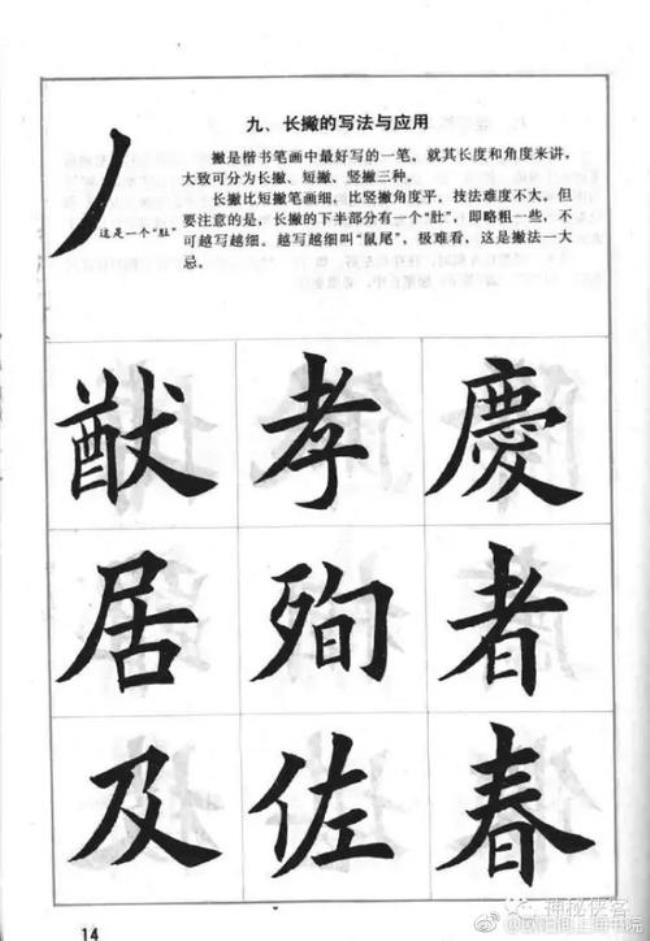 九、长撇的写法与应用
撇是楷书笔画中最好写的一笔。就其长度和角度来讲，
大致可分为长撇、短撇、竖撇三种。
长撇比短撇笔画细，比竖撇角度平，技法难度不大。但
要注意的是，长撇的下半部分有一个“肚”，即略粗一些，不
可越写越细。越写越细叫“鼠尾”，极难看，这是撇法一大
忌。
这是一个“肚”
猷 孝 慶
居 殉 者
及 佐 春
14
神秘侠客